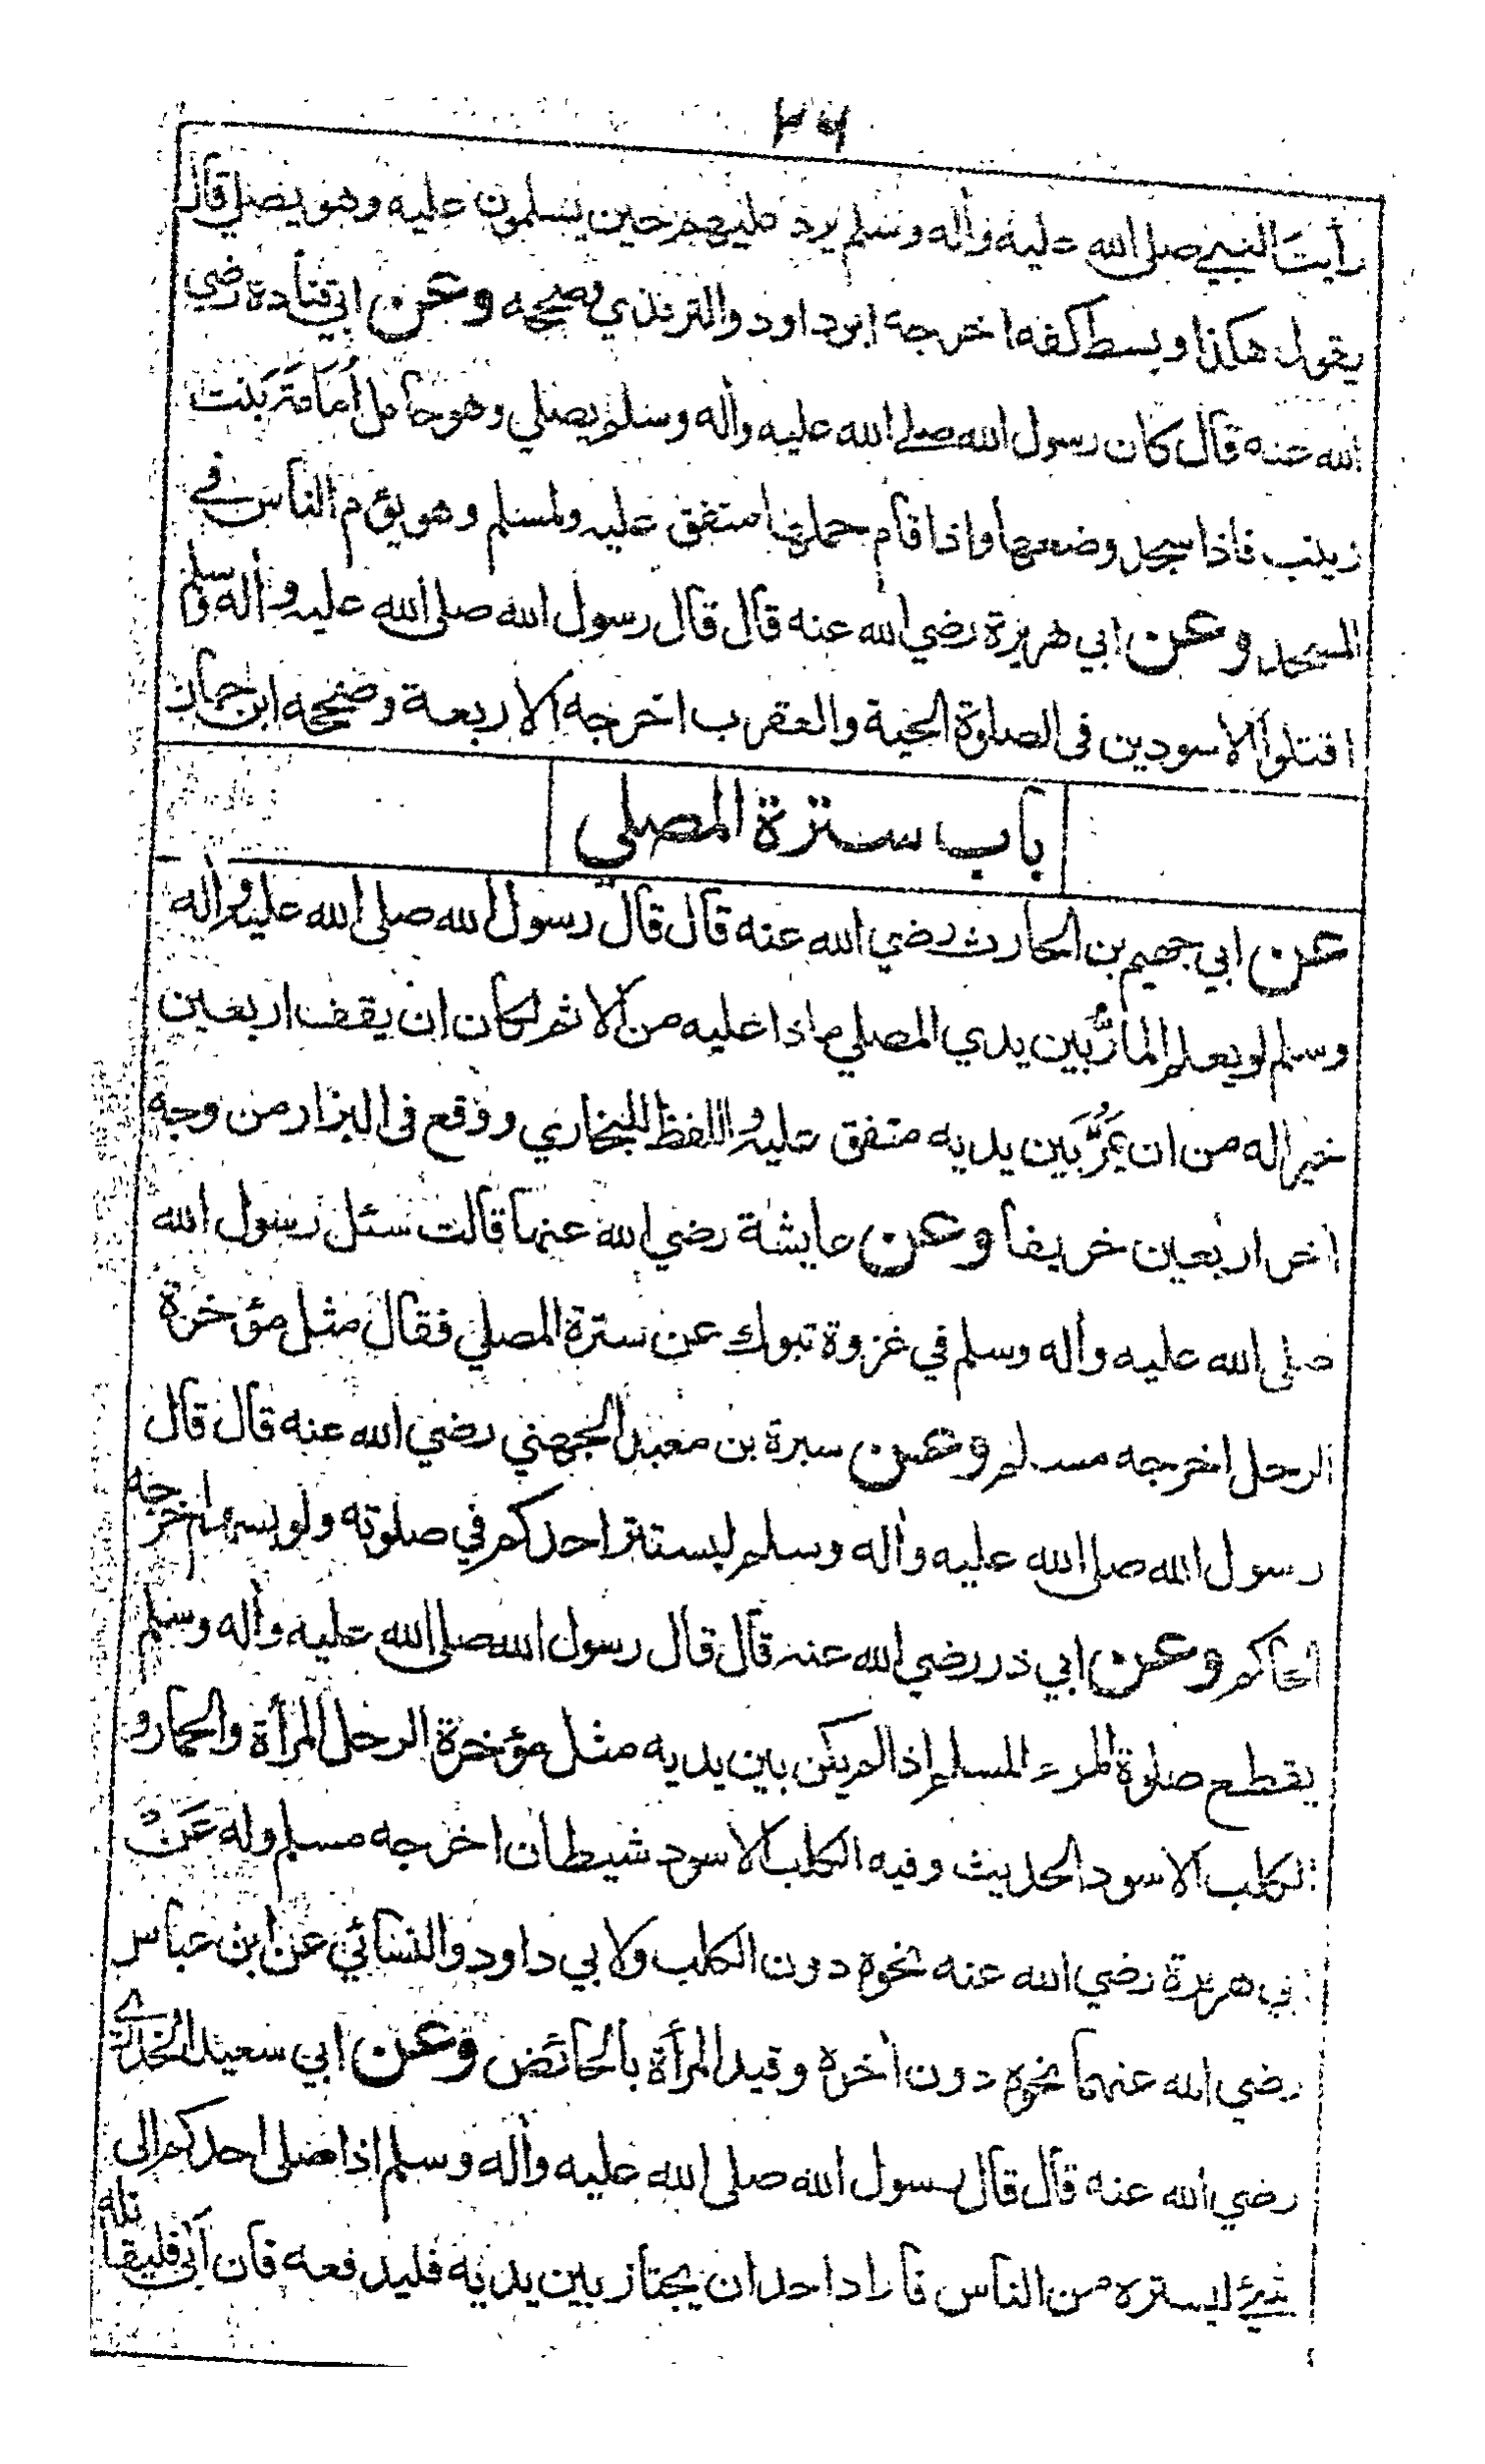 ٢٦
رأيت النبي صلى الله عليه وأله وسلم يرد عليهم حين يسلمون عليه وهو يصلي قال
يقول هكذا وبسط كفه اخرجه ابو داود والترمذي وصححه وعن ابي قتادة رضي
الله عنه قال كان رسول الله صلى الله عليه وأله وسلم يصلي وهو حامل أمامة بنت
زينب فاذا سجد وضعها واذا قام حملها متفق عليه ولمسلم وهو يؤم الناس في
المسجد وعن ابي هريرة رضي الله عنه قال قال رسول الله صلى الله عليه وأله وسلم
اقتلوا الاسودين فى الصلوة الحية والعقرب اخرجه الاربعة وصححه ابن حبان
باب سترة المصلي
عن ابي جهيم بن الحارث رضي الله عنه قال قال رسول الله صلى الله عليه وأله
وسلم لو يعلم المارُّ بين يدي المصلي ماذا عليه من الاثم لكان ان يقف اربعين
خيرا له من ان يمرَّ بين يديه متفق عليه واللفظ للبخاري ووقع فى البزار من وجه
اخر اربعين خريفا وعن عايشة رضي الله عنها قالت سئل رسول الله
صلى الله عليه وأله وسلم في غزوة تبوك عن سترة المصلي فقال مثل مؤخرة
الرحل اخرجه مسلم وعن سبرة بن معبد الجهني رضي الله عنه قال قال
رسول الله صلى الله عليه وأله وسلم ليستتر احدكم في صلوته ولو بسهم اخرجه
الحاكم وعن ابي ذر رضي الله عنه قال قال رسول الله صلى الله عليه وأله وسلم
يقطع صلوة المرء المسلم اذا لم يكن بين يديه مثل مؤخرة الرحل المرأة والحمار و
الكلب الاسود الحديث وفيه الكلب الاسود شيطان اخرجه مسلم وله عَنْ
ابي هريرة رضي الله عنه نحوه دون الكلب ولابي داود والنسائي عن ابن عباس
رضي الله عنهما نحوه دون أخره وقيد المرأة بالحائض وعن ابي سعيد الخدري
رضي الله عنه قال قال رسول الله صلى الله عليه وأله وسلم اذا صلى احدكم الى
شئ يستره من الناس فاراد احد ان يجتاز بين يديه فليدفعه فان أبى فليقاتله